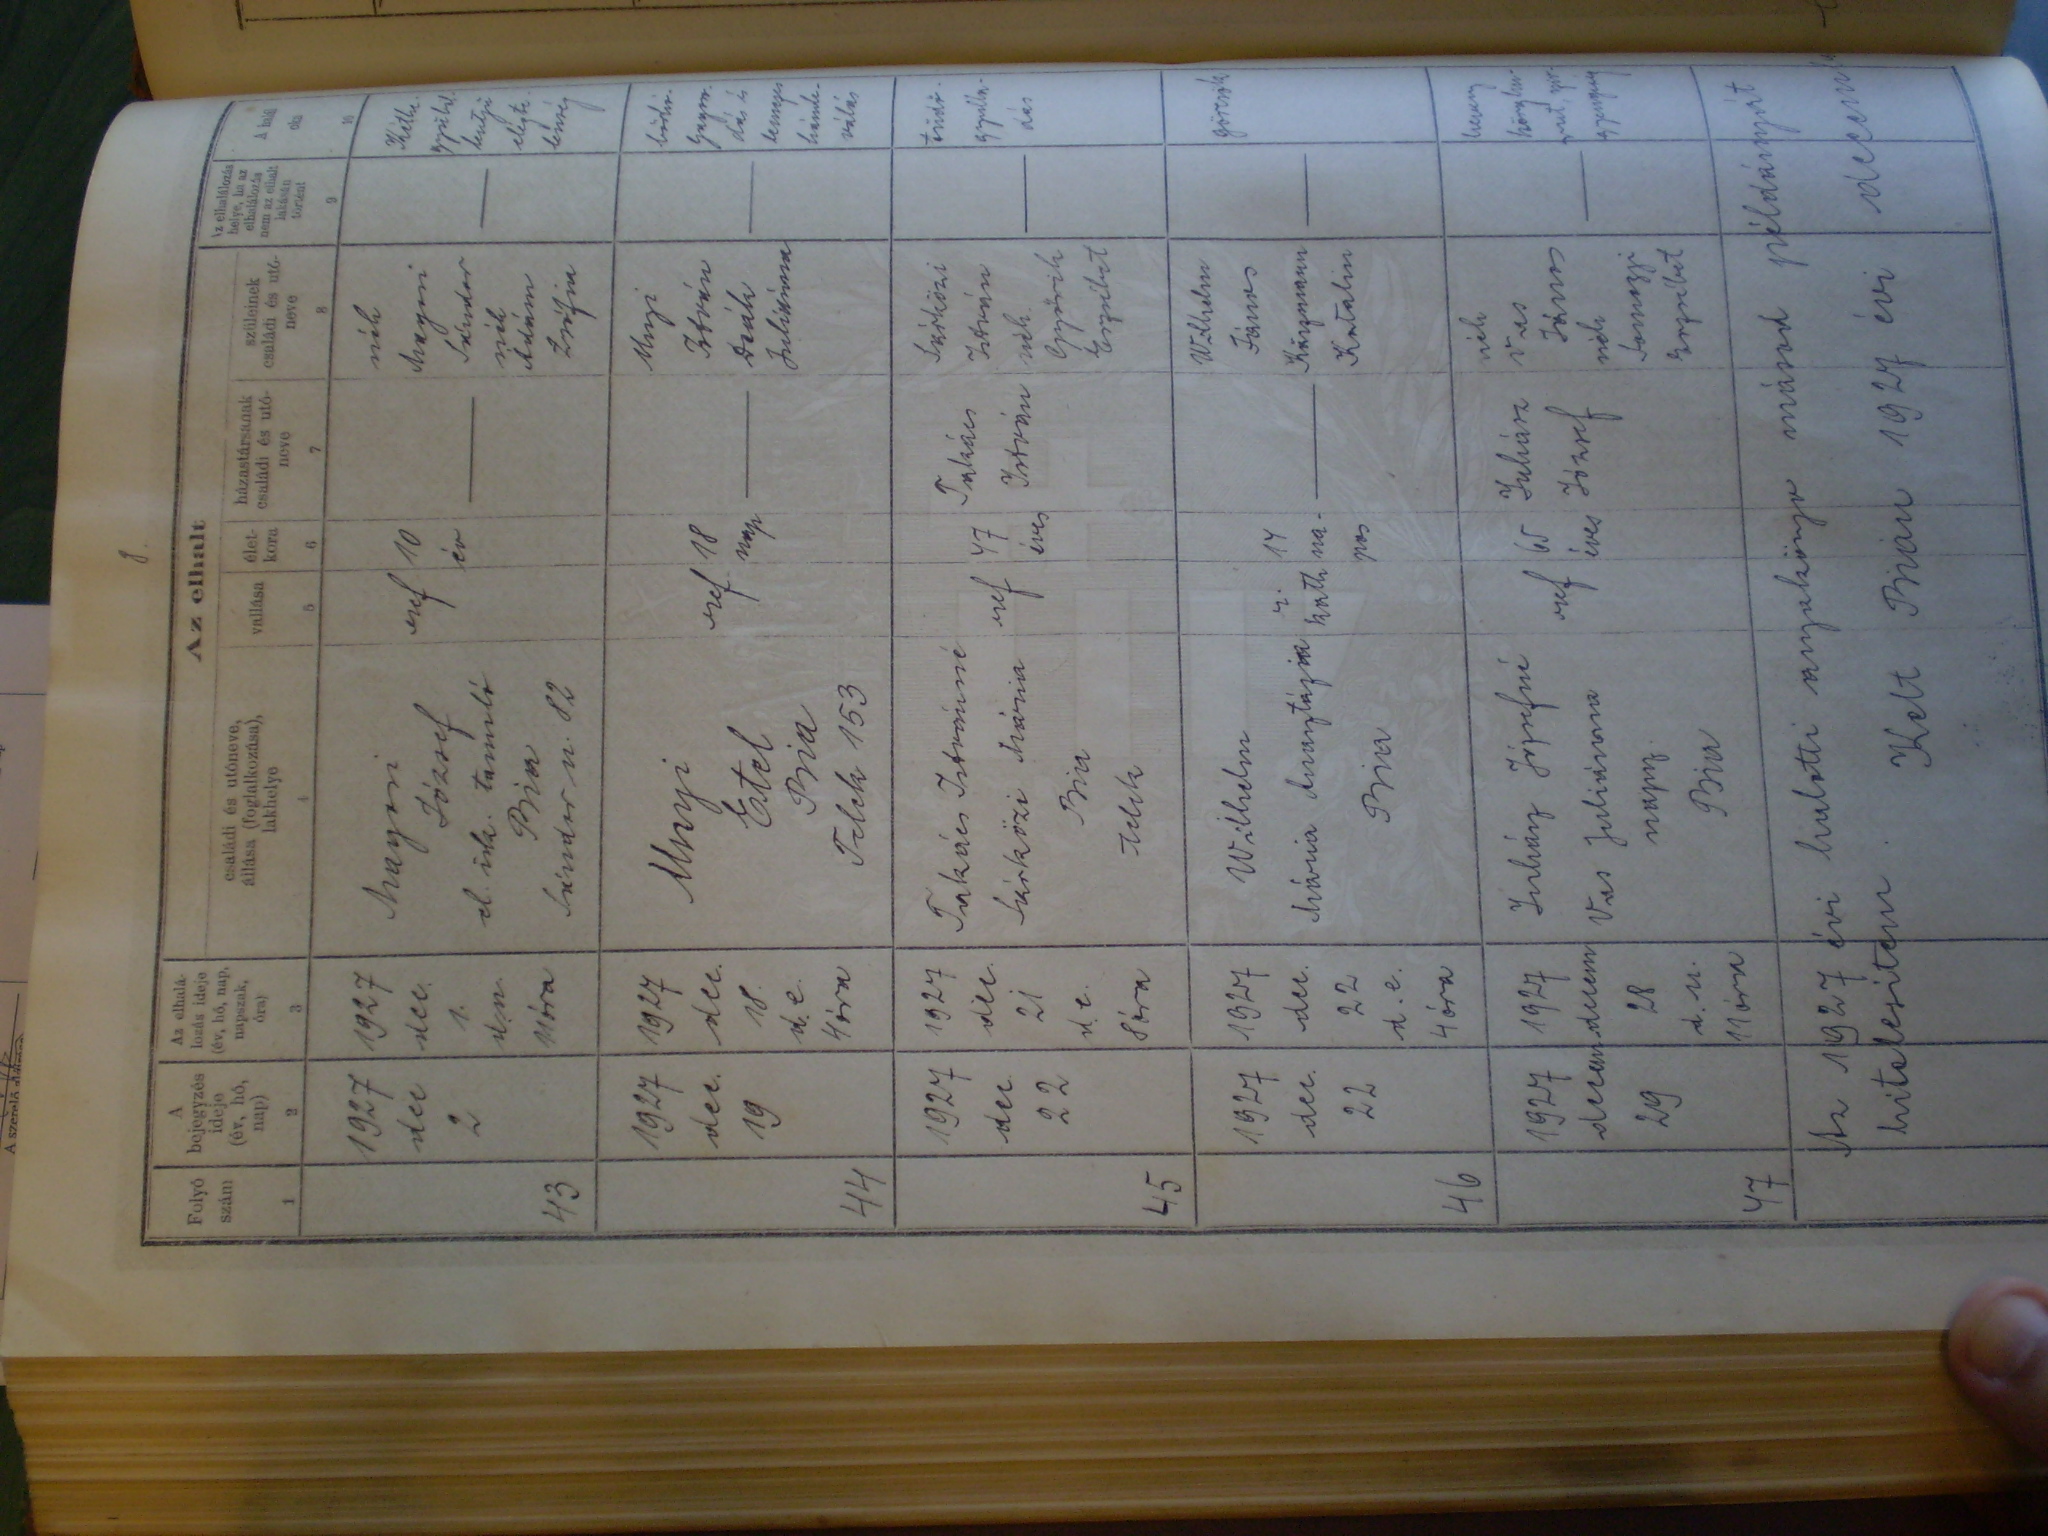 8.
Az elhalt
Folyó
szám
A
bejegyzés
ideje
(év, hó,
nap)
Az elhalá-
lozás ideje
(év, hó, nap,
napszak,
óra)
családi és utóneve,
állása (foglalkozása),
lakhelye
vallása
élet-
kora
házastársának
családi és utó-
neve
szüleinek
családi és utó-
neve
Az elhalálozás
helye, ha az
elhalálozás
nem az elhalt
lakásán
történt
A halál
oka
1
2
3
4
5
6
7
8
9
10
43
1927
dec
2
1927
dec.
1.
óra
József
el. isk. tanuló
Bia
Sándor u. 82
ref
10
év
néh
Sándor
néh
Ádám
Zsófia
44
1927
dec.
19
1927
dec.
18.
d. e.
4 óra
Etel
Bia
Telek 153
ref
18
nap
István
Deák
Juliánna
45
1927
dec.
22
1927
dec.
21
d. e.
8 óra
Takács Istvánné
Sárközi Mária
Bia
telek
ref
47
éves
Takács
István
Sárközi
István
néh.
Erzsébet
tüdő-
gyulla-
dás
46
1927
dec.
22
1927
dec.
22
d. e.
4 óra
Wilhelm
Mária Anasztázia
Bia
r.
kath
14
na-
pos
Wilhelm
János
Katalin
görcsök
47
1927
decem.
29
1927
decem
28
d. u.
11 óra
Juhász Józsefné
Vas Juliánna
napsz.
Bia
ref
65
éves
Juhász
József
néh
Vas
János
néh
Erzsébet
Az 1927 évi halotti anyakönyv másod példányát
hitelesitem. Kelt Bián 1927 évi decem